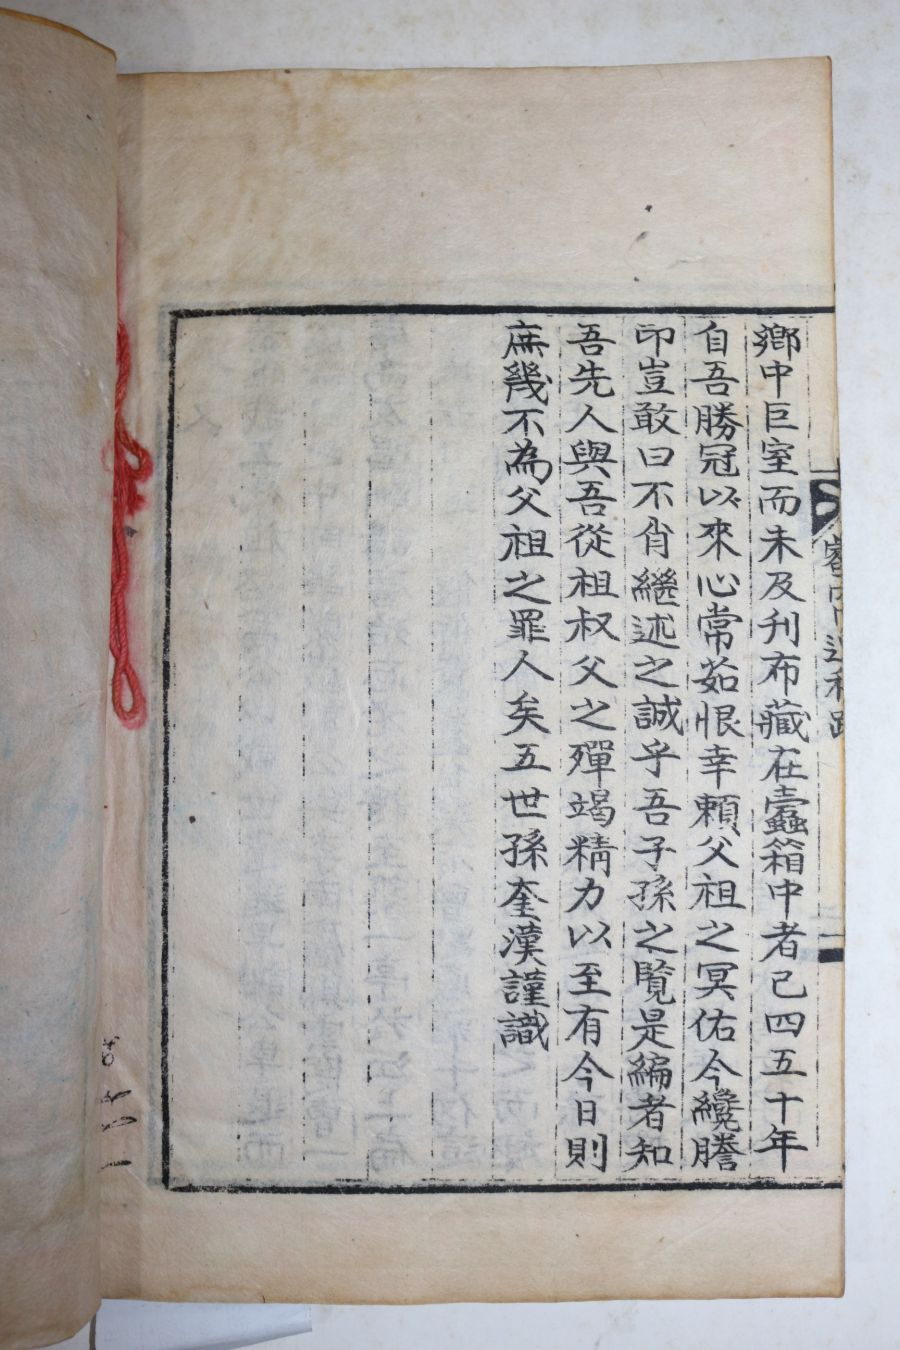 鄉中巨室而未及刊布藏在蠹箱中者已四五十年
自吾勝冠以來心常茹恨幸賴父祖之冥佑今纔謄
印豈敢曰不肖繼述之誠乎吾子孫之覧是編者知
吾先人與吾從祖叔父之殫竭精力以至有今日則
庶幾不為父祖之罪人矣五世孫奎漢謹識